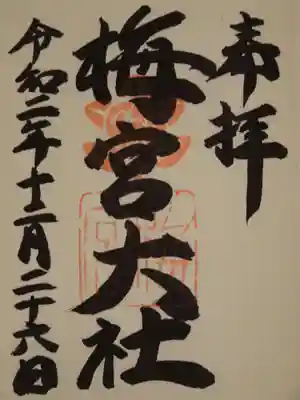 奉拝
梅宮大社
令和二年十二月二十六日